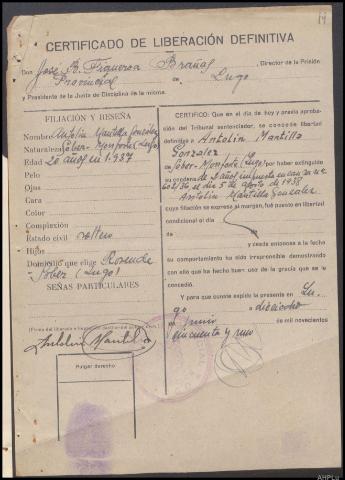 14
CERTIFICADO DE LIBERACIÓN DEFINITIVA
Don José B. Figueroa Brañas, Director de la Prisión
Provincial de Lugo
y Presidente de la Junta de Disciplina de la misma.
FILIACIÓN Y RESEÑA
Nombre Antolin Mantilla González
Naturaleza Sober-Monforte (Lugo)
Edad 20 años in 1.937
Pelo
Ojos
Cara
Color
Complexión
Estado civil soltero
Hijos
Domicilio que elige Rosende
-Sober (Lugo)
SEÑAS PARTICULARES
(Firma del liberado
Antolin Mantilla
Pulgar derecho
CERTIFICO: Que en el día de hoy y previa aprobación
del Tribunal sentenciador, se concede libertad
definitiva a Antolin Mantilla
Gonzalez
de Sober-Monforte (Lugo) por haber extinguido
su condena de 2 años impuesta en causa nº
602/36 el día 5 de agosto de 1938
Antolin Mantilla Gonzalez
cuya filiación se expresa al margen, fué puesto en libertad
condicional el día
de
y desde entonces a la fecha
su comportamiento ha sido irreprensible demostrando
con ello que ha hecho buen uso de la gracia que se le
concedió.
Y para que conste expido la presente en Lu-
go a dieciocho
de junio de mil novecientos
cincuenta y uno
AHPLu